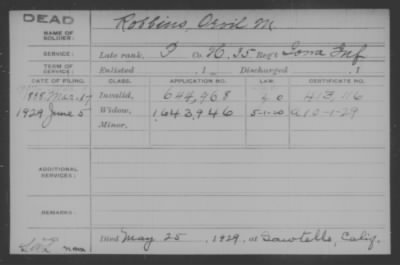 DEAD
NAME OF SOLDIER: Robbins, Orvil M.
SERVICE: Late rank, P Co. H, 35 Reg't Iowa Inf
TERM OF SERVICE: Enlisted , 1 Discharged , 1
DATE OF FILING. CLASS. APPLICATION NO. LAW. CERTIFICATE NO.
1888 Mar. 17 Invalid, 644,968 413,116
1929 June 5 Widow, 1,643,946 5-1-20 a 10-1-29
Minor,
ADDITIONAL SERVICES:
REMARKS:
Died May 25, 1929, at Sawtelle, Calif.